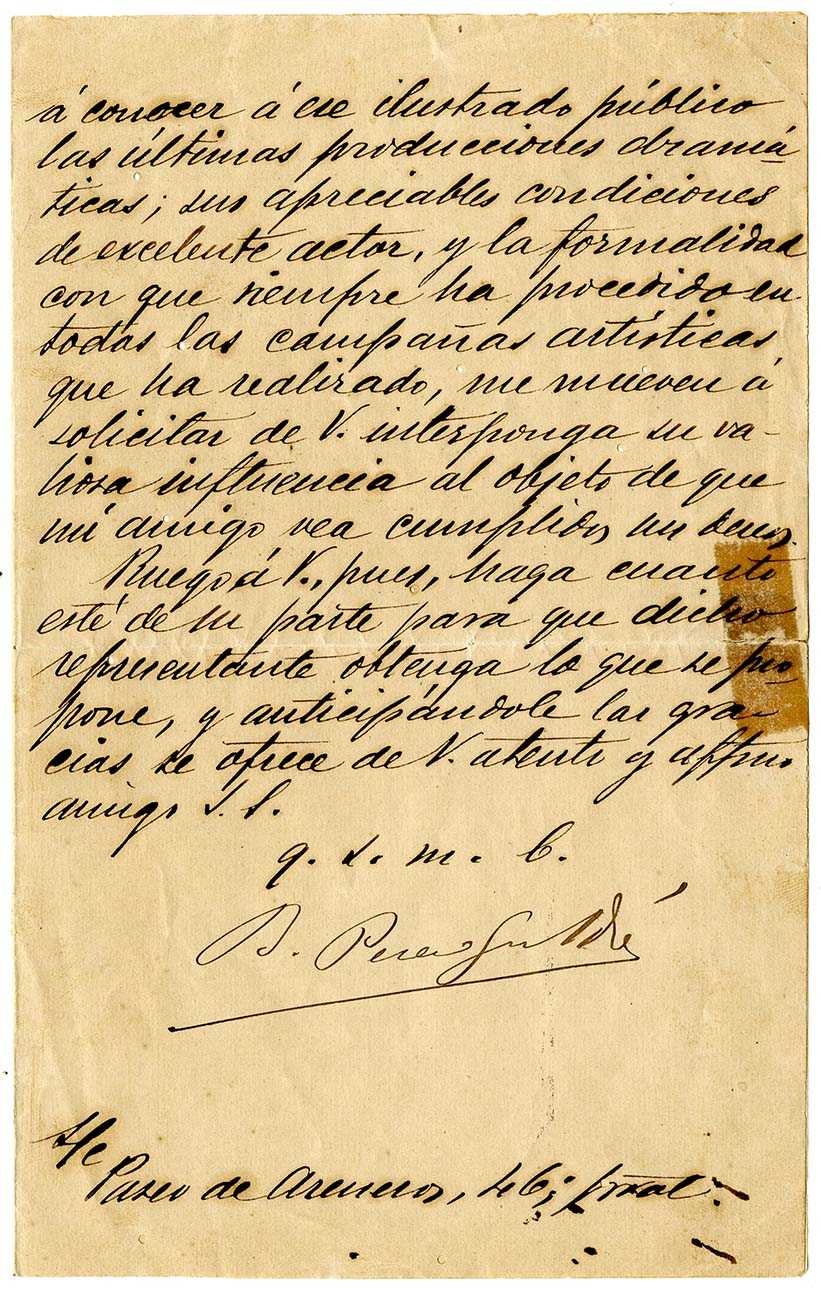 á conocer á ese ilustrado público
las últimas producciones dramá-
ticas; sus apreciables condiciones
de excelente actor, y la formalidad
con que siempre ha procedido en
todas las campañas artísticas
que ha realizado, me mueven á
solicitar de V. interponga su va-
liosa influencia al objeto de que
mi amigo vea cumplidos sus deseos.
Ruego á V., pues, haga cuanto
esté de su parte para que dicho
representante obtenga lo que se pro-
pone, y anticipándole las gra-
cias se ofrece de V. atento y affmo
amigo S. S.
q. s. m. b.
B. Perez Galdós
S/c
Paseo de Areneros, 46, pral.